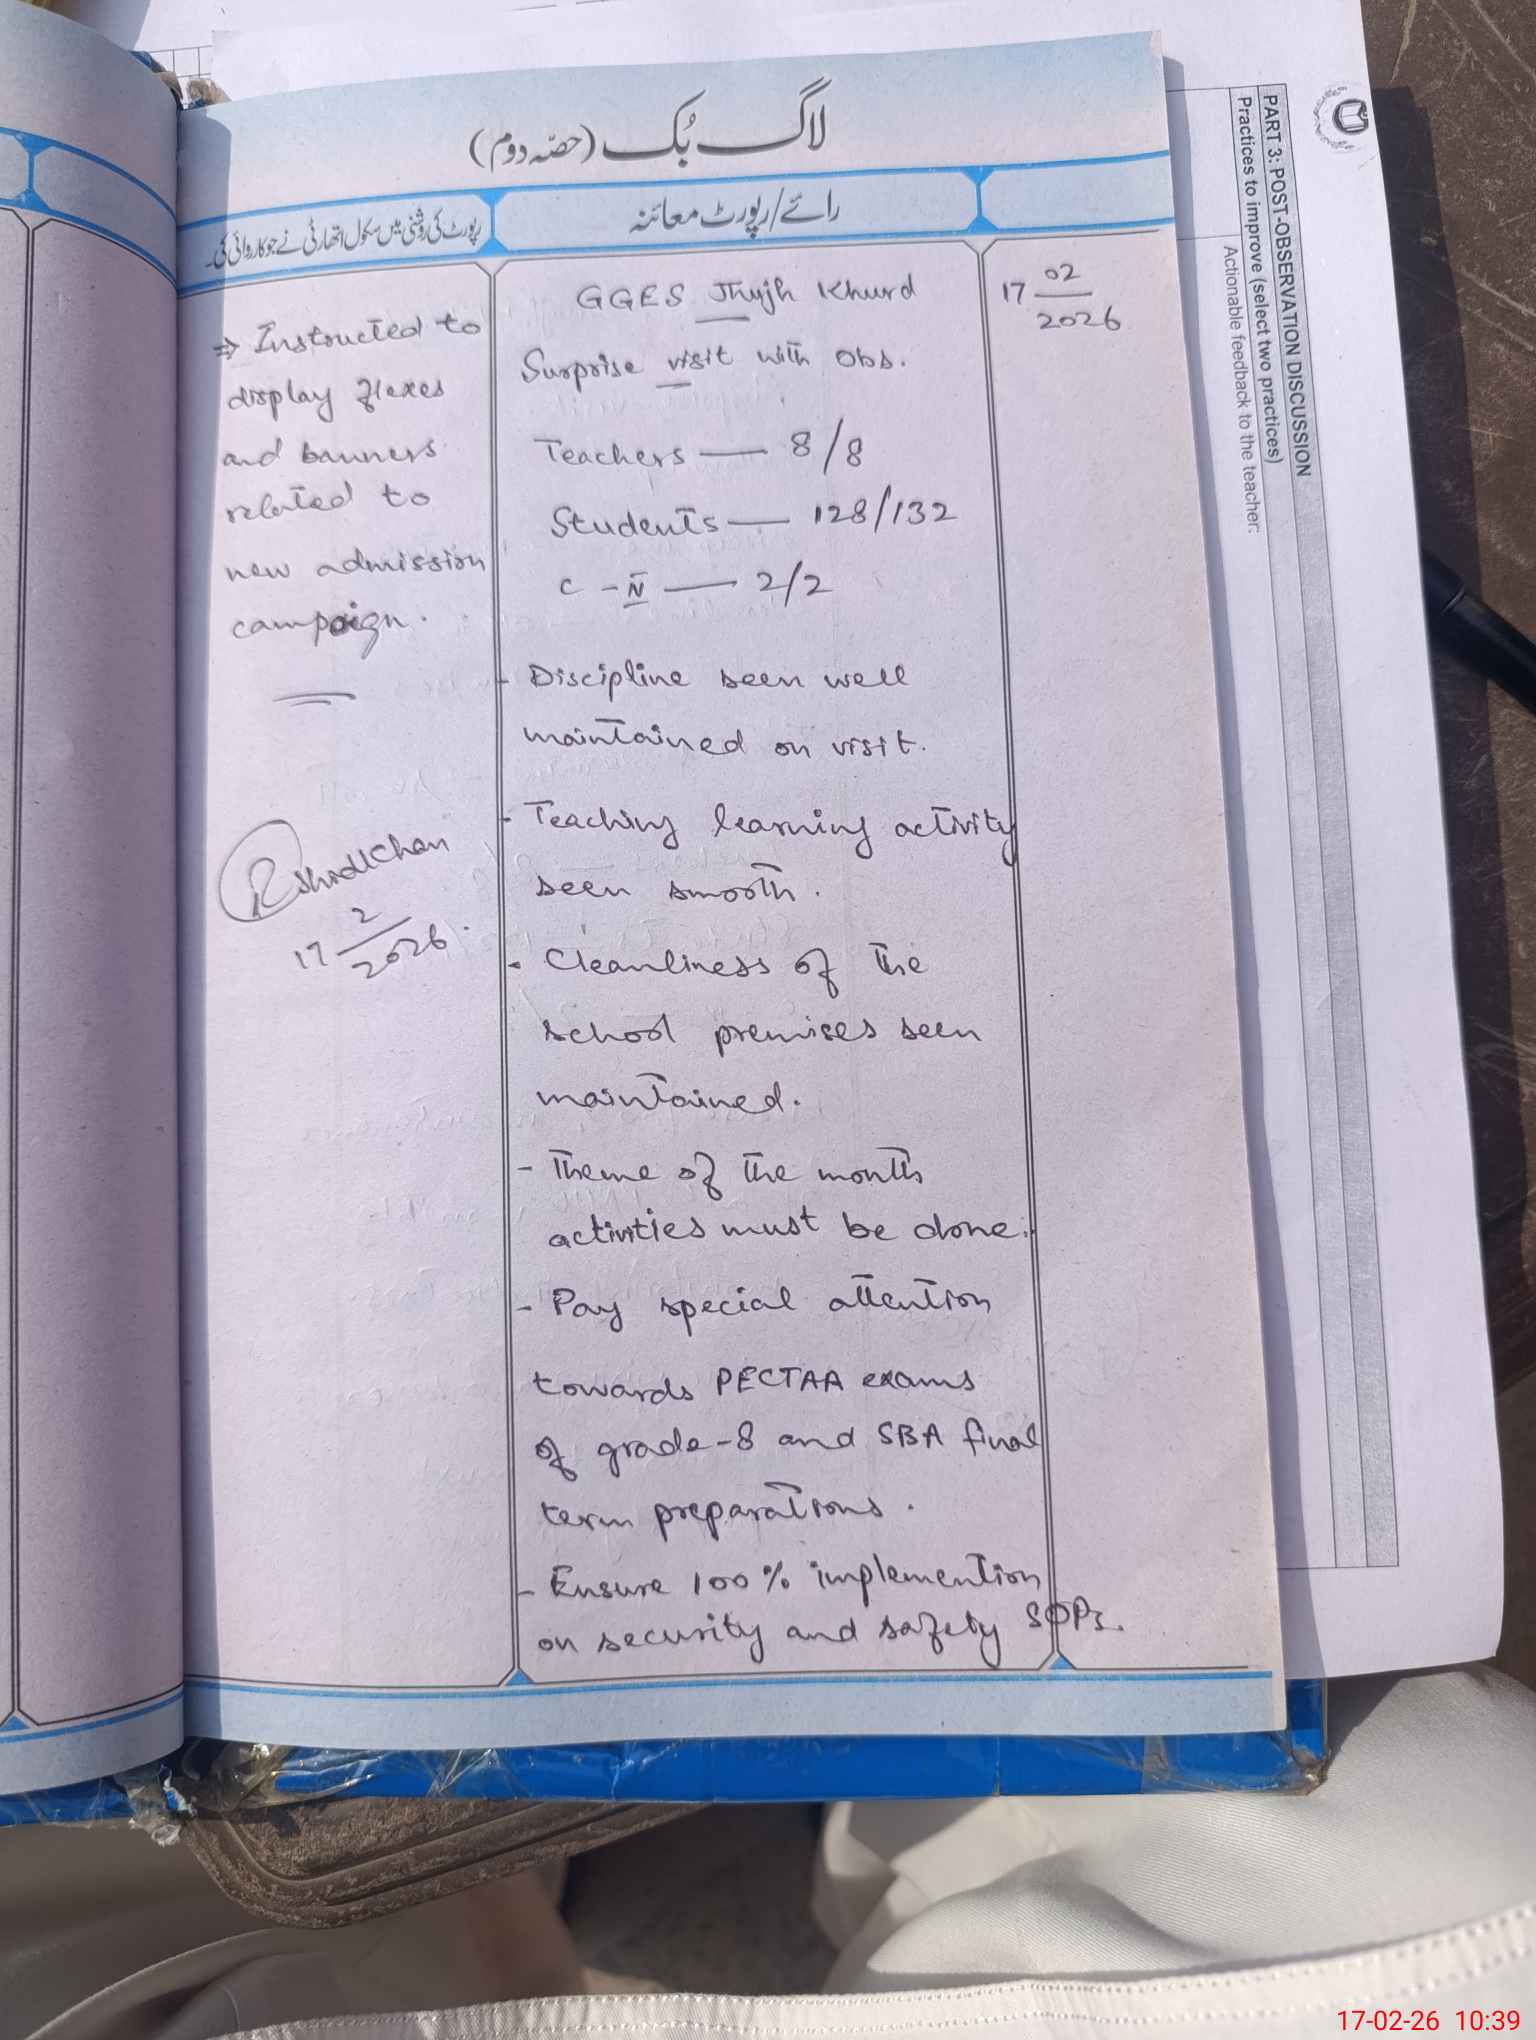 لاگ بُک (حصّہ دوم)
رائے/رپورٹ معائنہ
رپورٹ کی روشنی میں سکول اتھارٹی نے جو کارروائی کی۔
17 02/2026
GGES Jhujh Khurd
Surprise visit with Obs.
Teachers — 8/8
Students — 128/132
C - N — 2/2
- Discipline seen well
maintained on visit.
- Teaching learning activity
seen smooth.
- Cleanliness of the
school premises seen
maintained.
- Theme of the month
activities must be done.
- Pay special attention
towards PECTAA exams
of grade-8 and SBA final
term preparations.
- Ensure 100% implemention
on security and safety SOPs.
⇒ Instructed to
display flexes
and banners
related to
new admission
campaign.
17 2/2026.
PART 3: POST-OBSERVATION DISCUSSION
Practices to improve (select two practices)
Actionable feedback to the teacher:
17-02-26 10:39